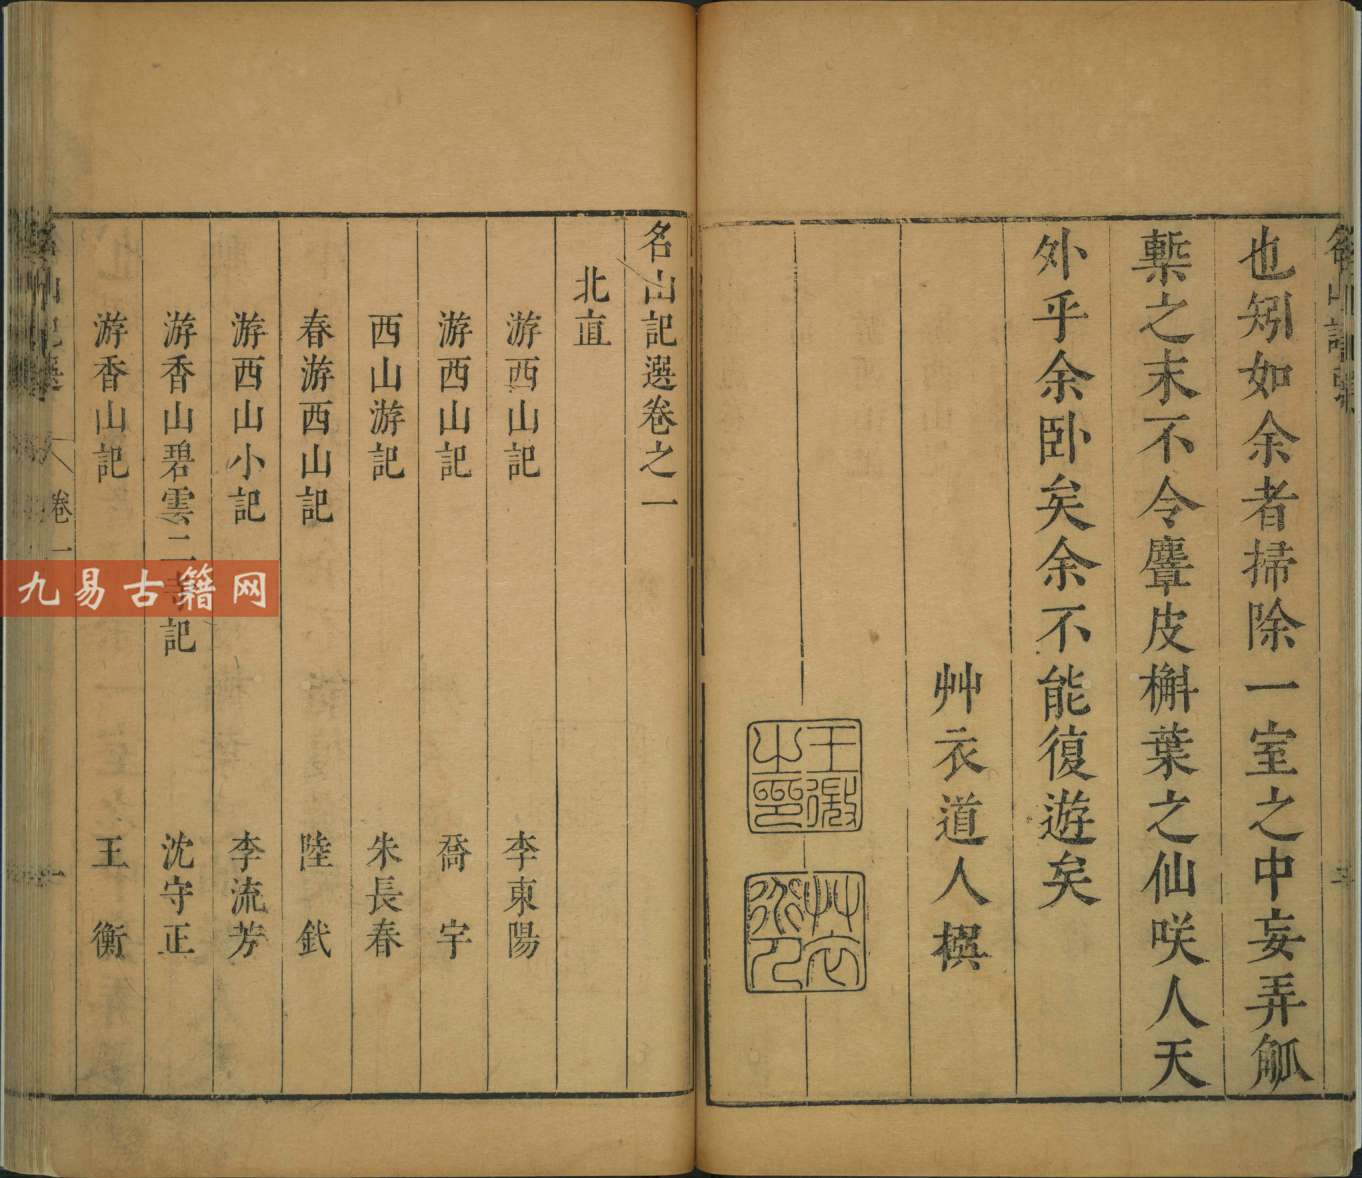 也矧如余者掃除一室之中妄弄觚
槧之末不令麞皮槲葉之仙咲人天
外乎余卧矣余不能復遊矣
艸衣道人撰
王微之印
艸衣
名山記選卷之一
北直
游西山記 李東陽
游西山記 喬宇
西山游記 朱長春
春游西山記 陸釴
游西山小記 李流芳
游香山碧雲二寺記 沈守正
游香山記 王衡
卷一
九易古籍网